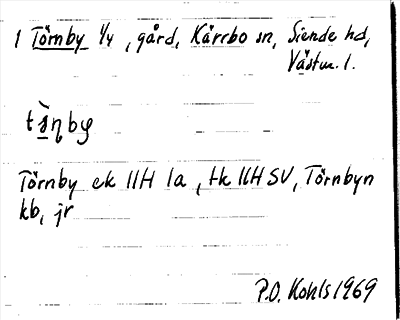 1 Törnby 1/4, gård, Kärrbo sn, Siende hd,
Västm. l.
Törnby ek 11H 1a, tk 11H SV, Törnbyn
kb, jr
P.O. Kohls 1969